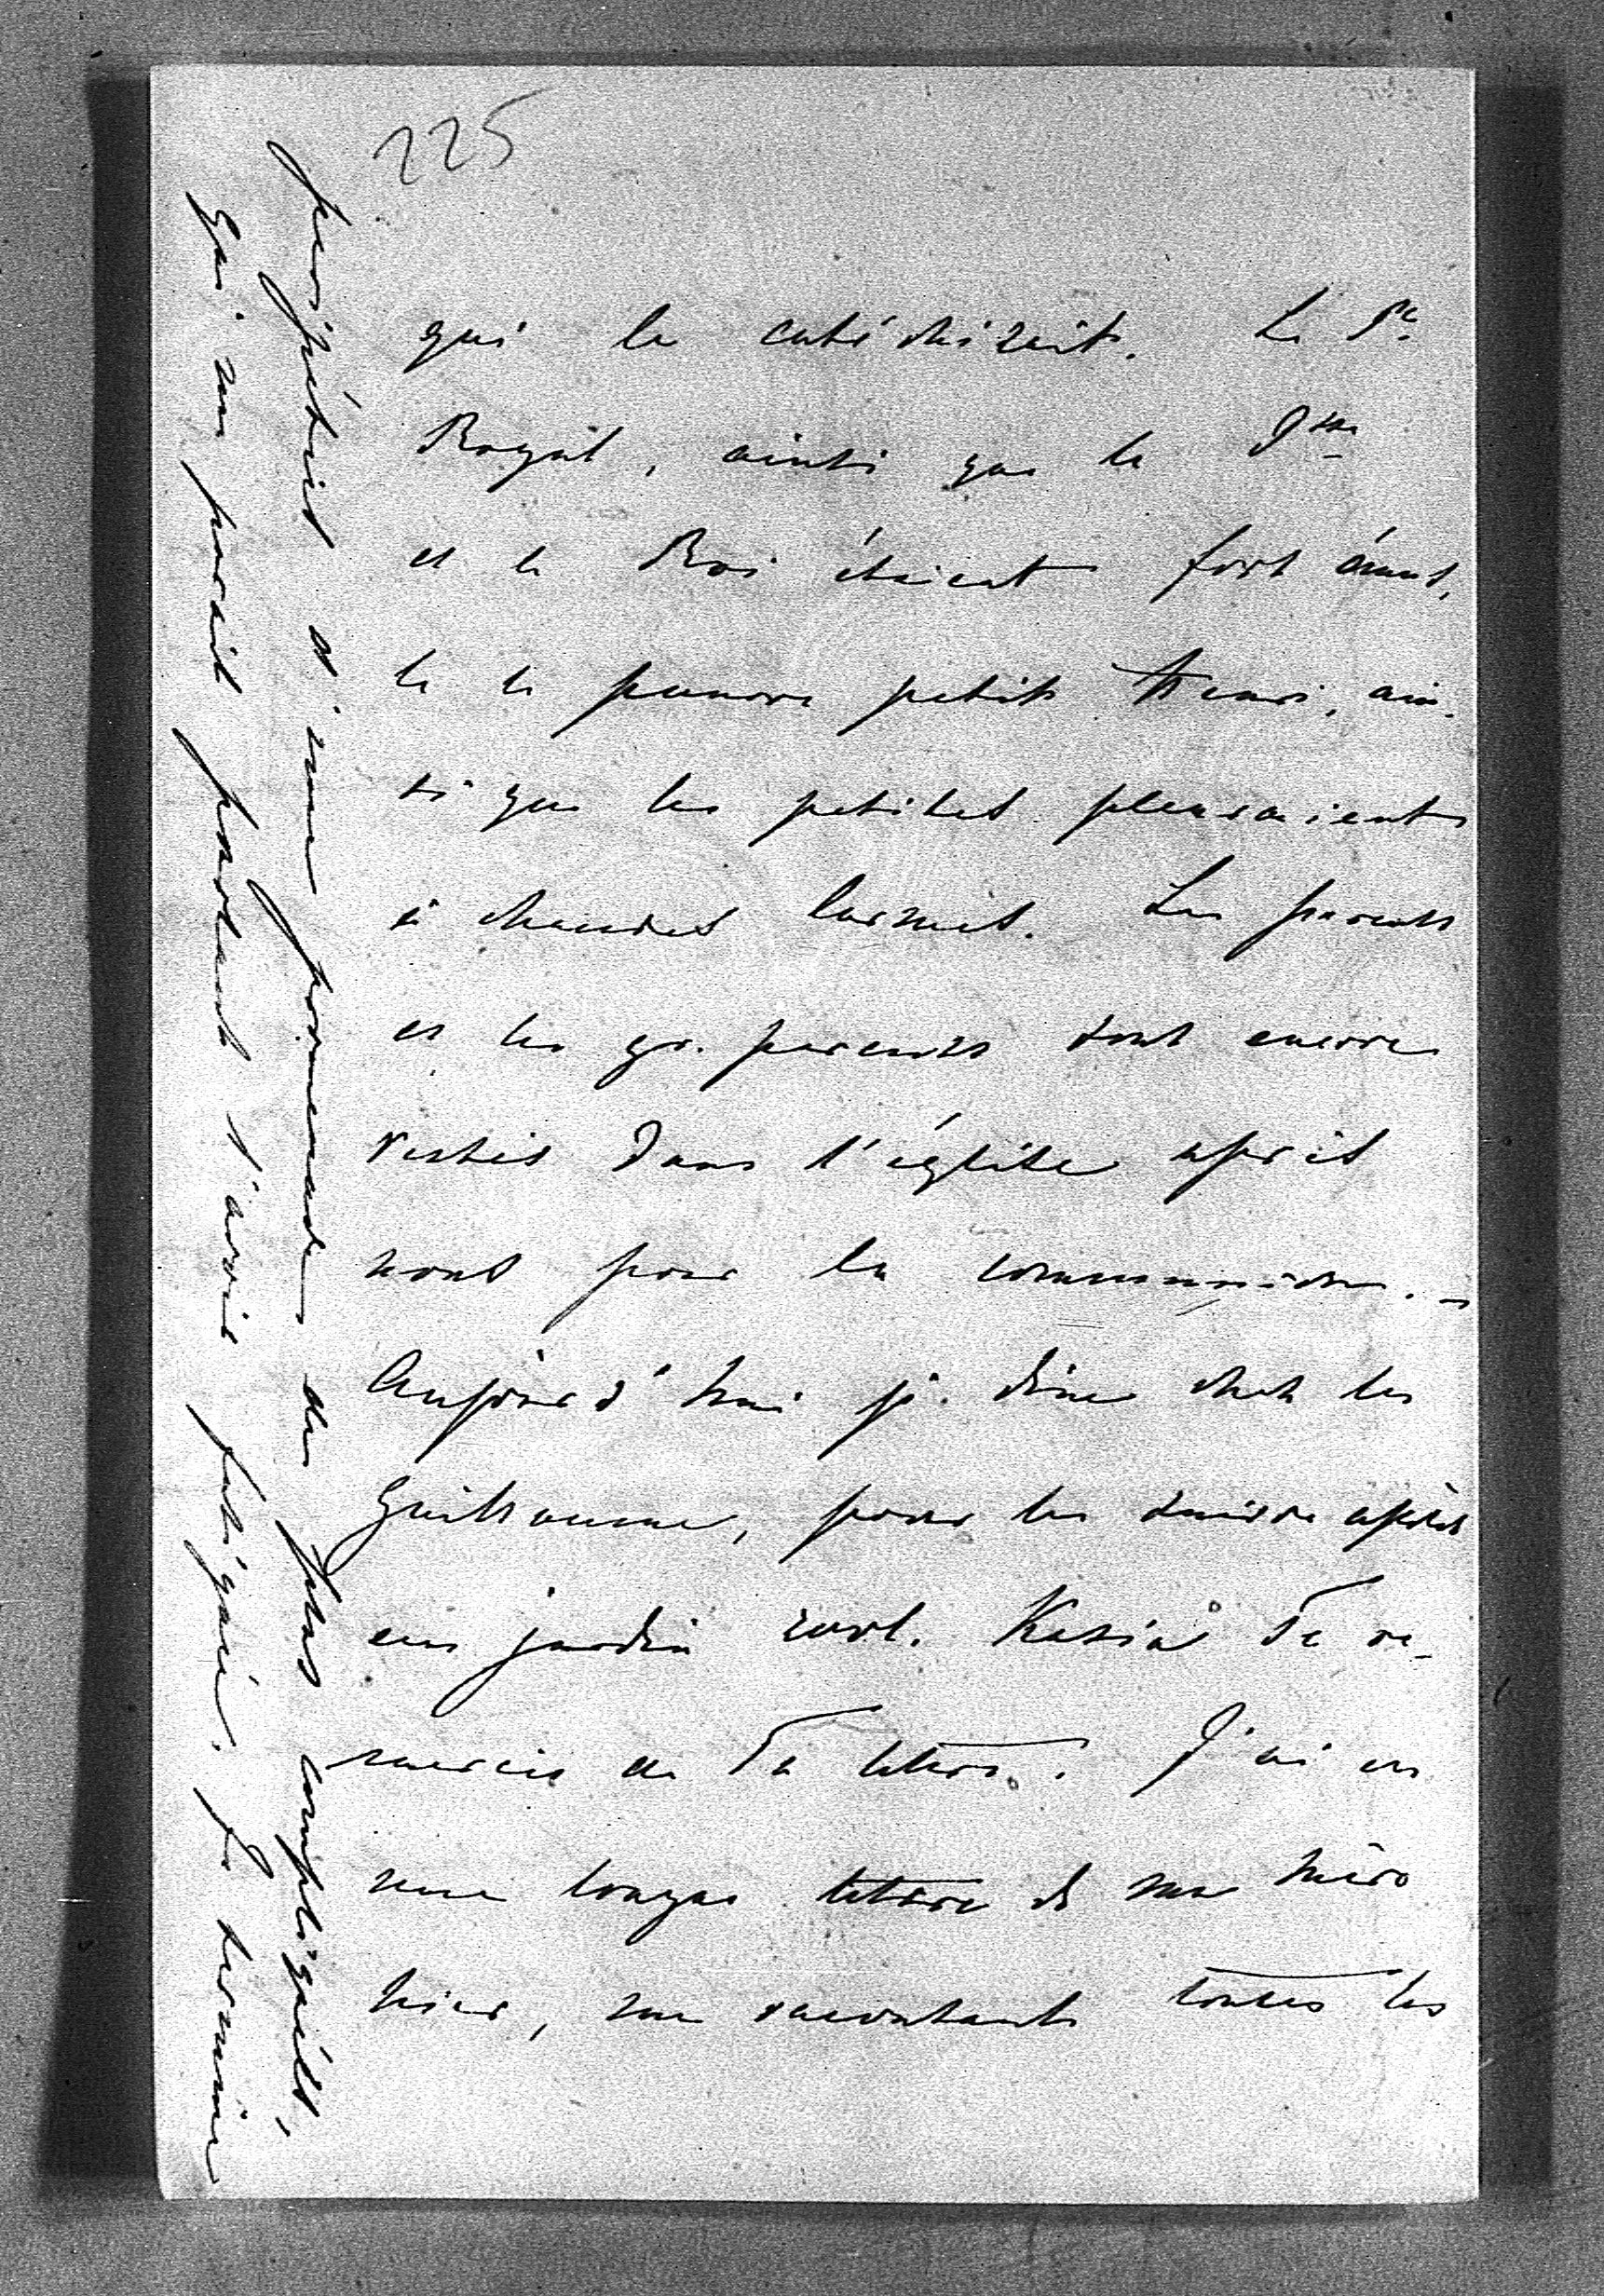 225
qui le catéchisait. Le Pce
Royal, ainsi que la Psse
et le Roi étaient fort émus,
le pauvre petit Henri, ain-
si que les petites pleuraient
à chaudes larmes. Les parents
et les gr. parents sont encore
restés dans l'église après
nous pour la communion. –
Aujourd'hui je dine chez les
Guillaume, pour les suivre après
au jardin zool. Kasia Te re-
mercie de Ta lettre. J'ai eu
une longue lettre de ma mère
hier, me racontant toutes les
péripéties d'une promenade des plus compliquées,
qui me parait pourtant l'avoir fatiguée. Je termine